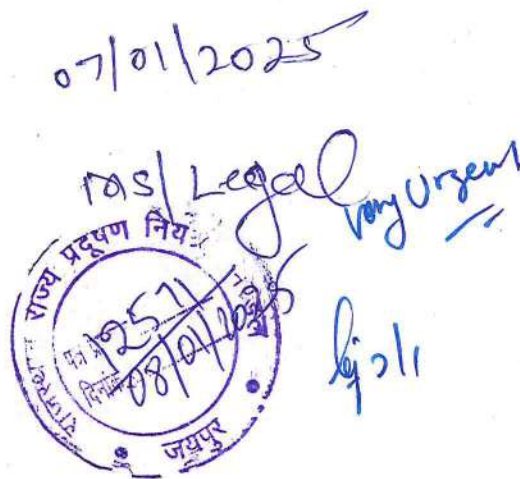 07/01/2025
MS/Legal
Very Urgent
राज्य प्रदूषण नियं
1257
08/01/2025
जयपुर